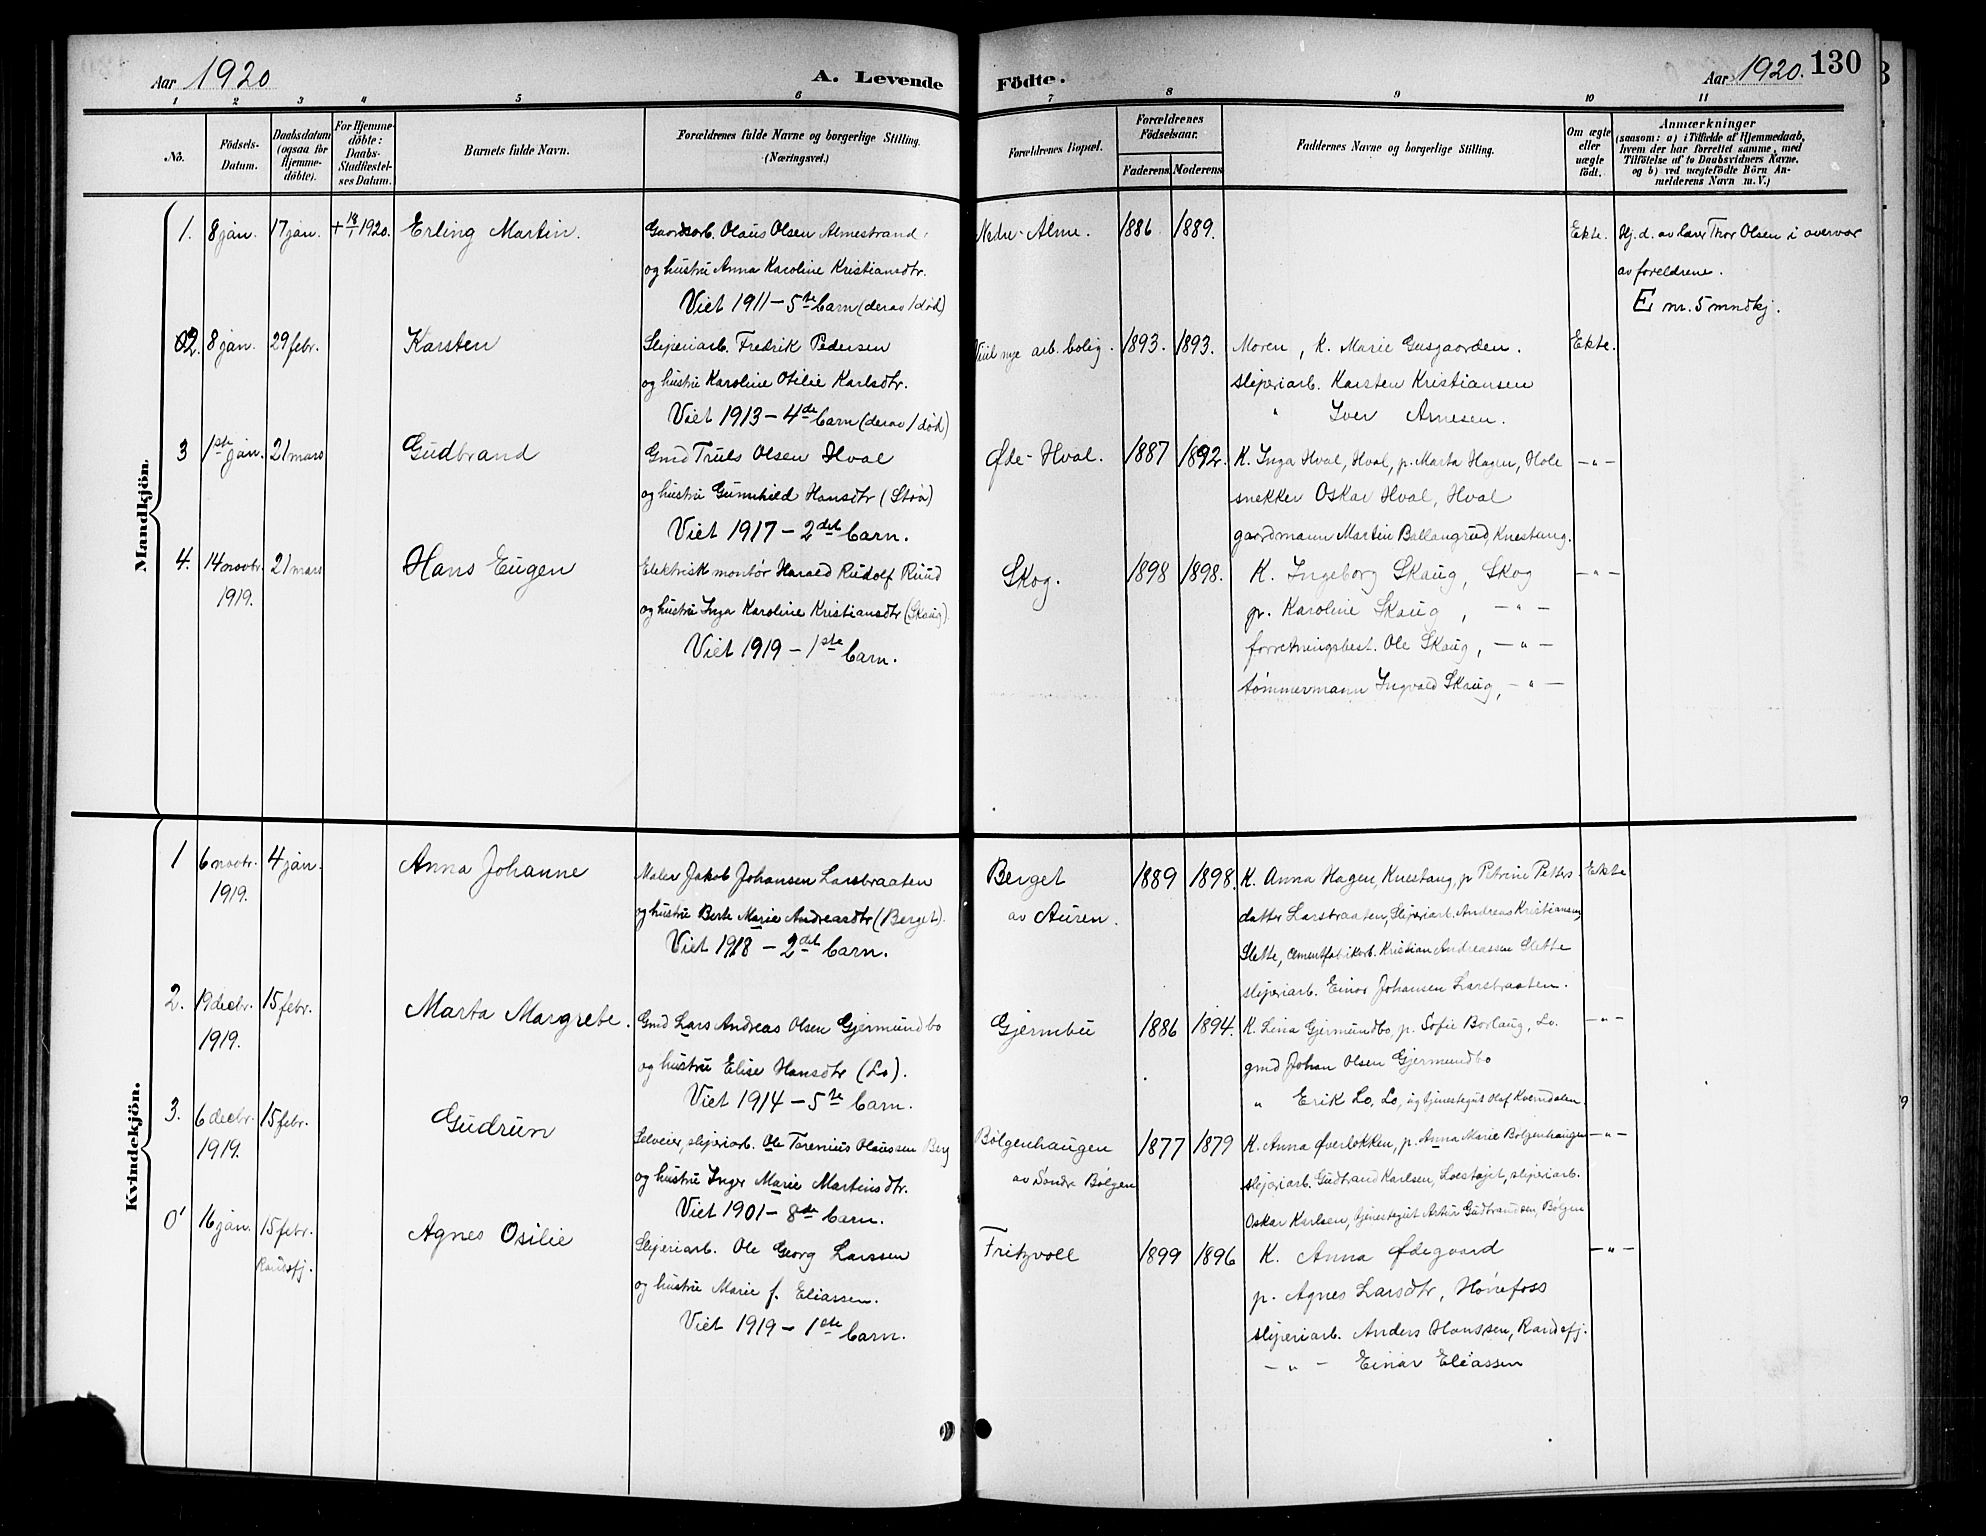 Aar 1920
A. Levende
Födte.
Aar 1920. 130
1 2 3 4 5 6 7 8 9 10 11
No.
Födsels-
Datum.
Daabsdatum
(ogsaa for
Hjemme-
döbte).
For Hjemme-
döbte:
Daabs-
Stadfæstel-
ses Datum.
Barnets fulde Navn.
Forældrenes fulde Navne og borgerlige Stilling.
(Næringsvei.)
Forældrenes Bopæl.
Forældrenes
Födselsaar.
Faderens. Moderens.
Faddernes Navne og borgerlige Stilling.
Om ægte
eller
uægte
født.
Anmærkninger
(saasom: a) i Tilfælde af Hjemmedaab,
hvem der har forrettet samme, med
Tilföielse af to Daabsvidners Navne,
og b) ved uægtefødte Börn An-
melderens Navn m. V.)
Mandkjön.
1. 8 jan. 17 jan. + 18/1 1920. Erling Martin.
Gaardsarb. Olaus Olsen Almestrand
og hustru Anna Karoline Kristiansdtr.
Viet 1911 – 5te barn (derav 1 død)
Nedre-Alme. 1886 1889.
Ekte.
Hj. d. av lærer Thor Olsen i overvær
av foreldrene.
E nr. 5 mndkj.
02. 8 jan. 29 febr. Karsten
Sliperiarb. Fredrik Pedersen
og hustru Karoline Otilie Karlsdtr.
Viet 1913 – 4de barn (derav 1 død)
nye arb. bolig. 1893. 1893.
Moren, K. Marie Gusgaarden.
sliperiarb. Karsten Kristiansen
" Iver Arnesen.
Ekte.
3 1ste jan. 21 mars Gudbrand
Gmd Truls Olsen Hval
og hustru Gunnhild Hansdtr (Strø)
Viet 1917 – 2det barn.
Øde-Hval. 1887 1892.
K. Inga Hval, Hval, p. Marta Hagen, Hole
snekker Oskar Hval, Hval
gaardmann Martin Ballangrud, Knestang.
– " –
4. 14 novbr. 21 mars Hans Eugen
1919.
Elektrisk montør Harald Rudolf Ruud
og hustru Inga Karoline Kristiansdtr (Skaug).
Viet 1919 – 1ste barn.
Skog. 1898 1898.
K. Ingeborg Skaug, Skog
p. Karoline Skaug, – " –
forretningsbest. Ole Skaug, – " –
tømmermann Ingvald Skaug, – " –
– " –
Kvindekjön.
1 6 novbr. 4 jan. Anna Johanne
1919.
Maler Jakob Johansen Larsbraaten
og hustru Berte Marie Andreasdtr (Berget).
Viet 1918 – 2det barn.
Berget
av Auren.
1889 1898.
K. Anna Hagen, Knestang, p Petrine Peters
datter Larsbraaten, Sliperiarb. Andreas Kristiansen
Slette, cementfabrikarb. Kristian Andreassen Slette
sliperiarb. Einar Johansen Larsbraaten.
Ekte
2. 19 decbr. 15 febr. Marta Margrete.
1919.
Gmd Lars Andreas Olsen Gjermundbo
og hustru Elise Hansdtr (Lo).
Viet 1914 – 5te barn.
Gjermbu 1886 1894.
K. Lina Gjermundbo, p. Sofie Borlaug, Lo.
gmd Johan Olsen Gjermundbo
" Erik Lo, Lo, ug tjenestegut Olaf Kverndalen.
– " –
3. 6 decbr. 15 febr. Gudrun
1919.
Selveier, sliperiarb. Ole Tarenius Olaussen Berg
og hustru Inger Marie Martinsdtr.
Viet 1901 – 8de barn.
Bølgenhaugen
av Søndre Bølgen
1877 1879
K. Anna Øverløkken, p. Anna Marie Bølgenhaugen
sliperiarb. Gudbrand Karlsen, sliperiarb.
Oskar Karlsen, tjenestegut Artur Gudbrandsen, Bølgen
– " –
0' 16 jan. 15 febr. Agnes Osilie
Randsfj.
Sliperiarb. Ole Georg Larssen
og hustru Marie f. Eliassen.
Viet 1919 – 1ste barn.
Fritzvold 1899 1896
K. Anna Ødegaard
p. Agnes Larsdtr, Hønefoss
sliperiarb. Anders Hanssen, Randsfj.
– " – Einar Eliassen
– " –